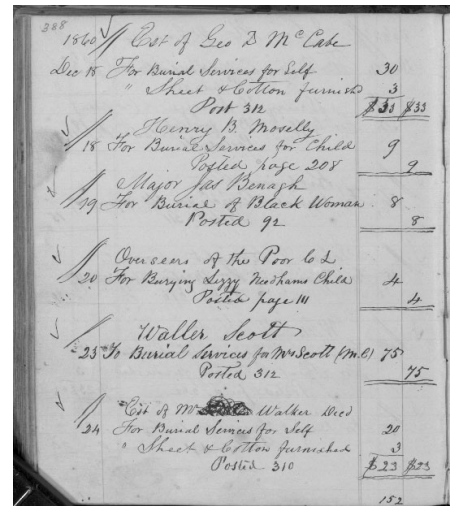 388
1860 Est of Geo D McCabe
Dec 18 For Burial Services for Self 30
" Sheet & Cotton furnished 3
Post 312 $33 $33
Henry B. Moselly
18 For Burial Services for Child 9
Posted page 208 9
Major Jas Benagh
19 For Burial of Black Woman 8
Posted 92 8
Overseers of the Poor C L
20 For Burying Lizzy Needhams Child 4
Posted page 111 4
Waller Scott
23 To Burial Services for Mrs Scott (M.C) 75
Posted 312 75
Est of Mr Walker Decd
24 For Burial Services for Self 20
" Sheet & Cotton furnished 3
Posted 310 $23 $23
152